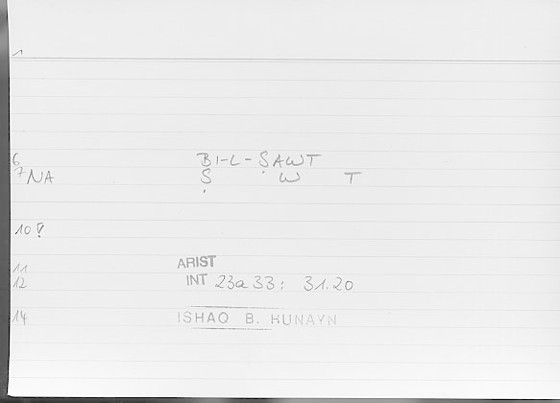 1
6 BI-L-ṢAWT
7 NA Ṣ W T
10 !
11 ARIST
12 INT 23a33; 31.20
14 ISHAQ B. HUNAYN